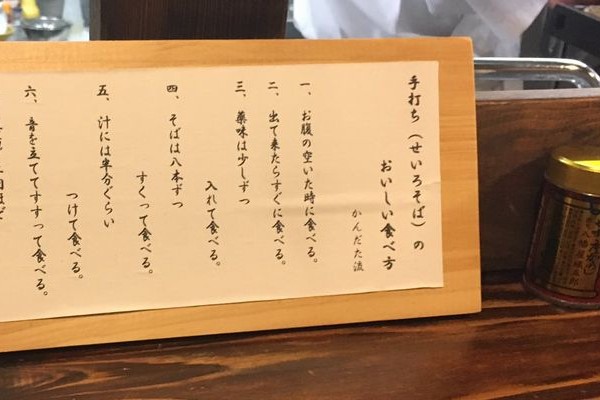 手打ち（せいろそば）の
おいしい食べ方
かんだた流
一、お腹の空いた時に食べる。
二、出て来たらすぐに食べる。
三、薬味は少しずつ
入れて食べる。
四、そばは八本ずつ
すくって食べる。
五、汁には半分ぐらい
つけて食べる。
六、音を立ててすすって食べる。